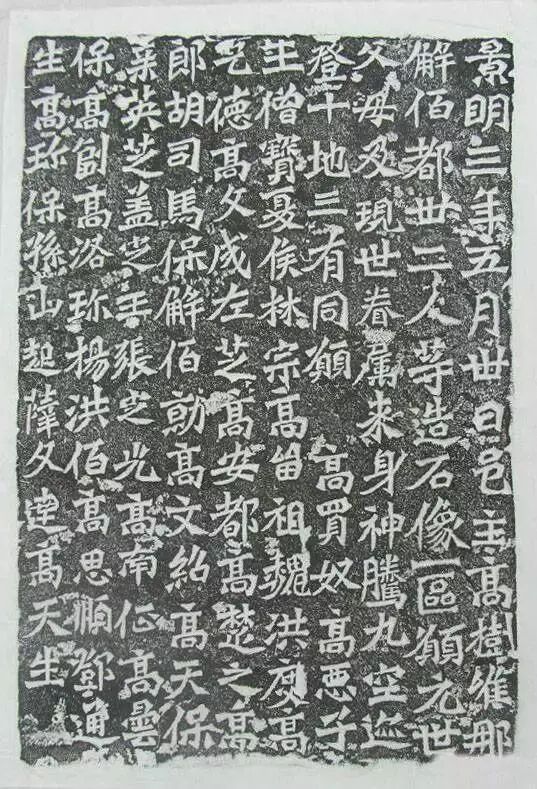 景明三年五月卅日邑主高樹維那
解佰都卅二人等造石像一區願元世
父母及現世眷属来身神騰九空迹
登十地三有同願 高買奴 高惡子
王僧寶夏侯林宗高留祖魏洪度高
乞德高文成左芝高安都高楚之高
郎胡司馬保解佰勍高文紹高天保
英芝盖定王張定光高南征高曇
保高副高洛珎楊洪佰高思順鄧通
生高珎保孫山起薛文達高天生